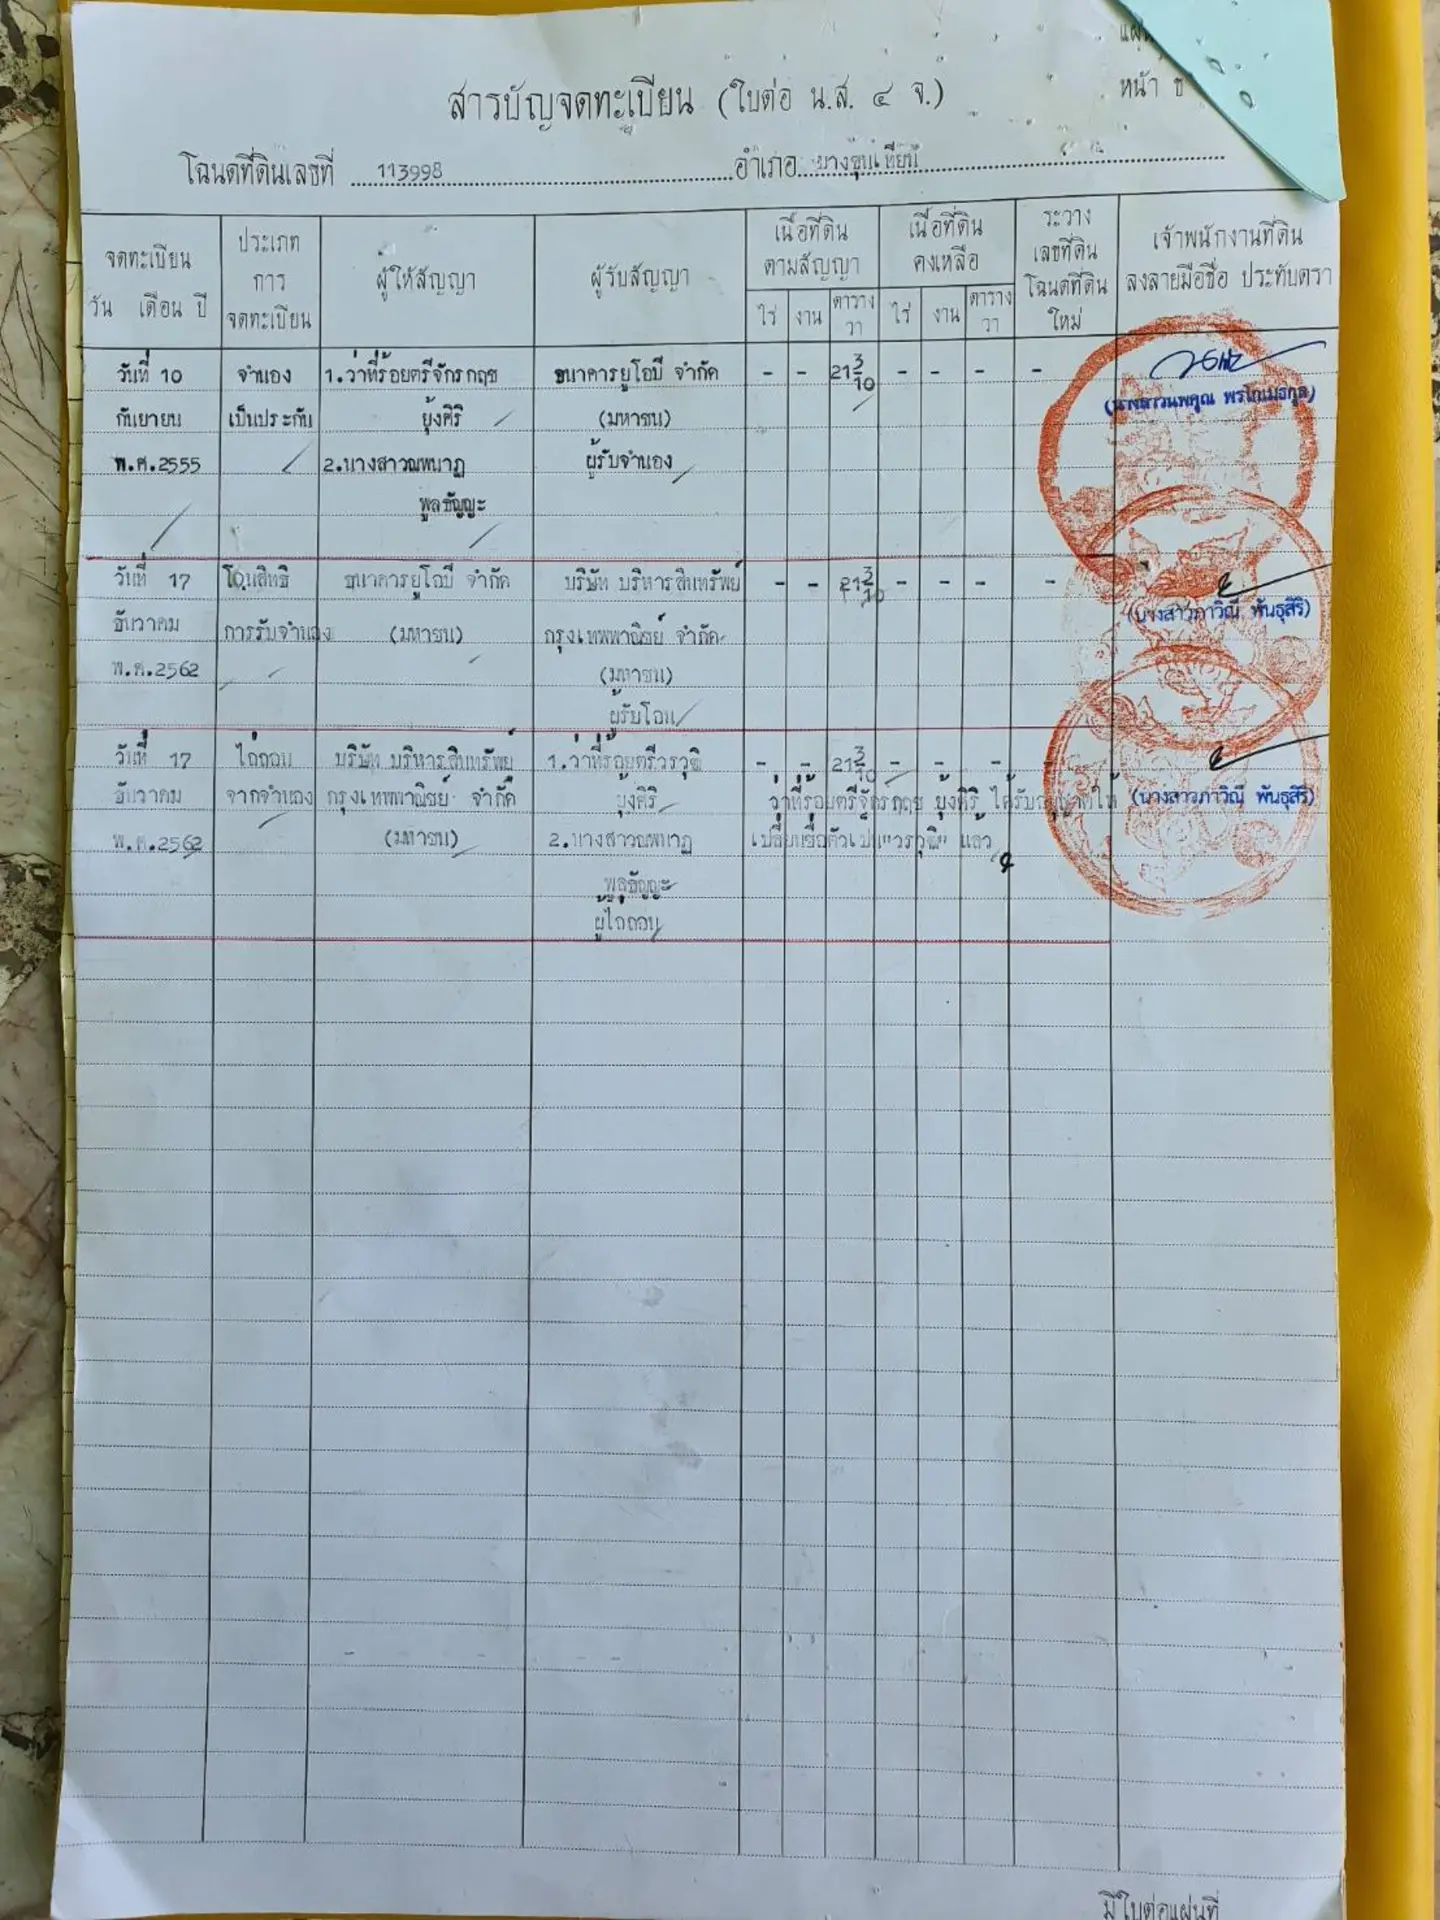 หน้า ข
สารบัญจดทะเบียน (ใบต่อ น.ส. ๔ จ.)
โฉนดที่ดินเลขที่ 113998 อำเภอ บางขุนเทียน
จดทะเบียน วัน เดือน ปี
ประเภท การ จดทะเบียน
ผู้ให้สัญญา
ผู้รับสัญญา
เนื้อที่ดิน ตามสัญญา
ไร่ งาน ตาราง วา
เนื้อที่ดิน คงเหลือ
ไร่ งาน ตาราง วา
ระวาง เลขที่ดิน โฉนดที่ดิน ใหม่
เจ้าพนักงานที่ดิน ลงลายมือชื่อ ประทับตรา
วันที่ 10 จำนอง 1.ว่าที่ร้อยตรีจักรกฤช ธนาคารยูโอบี จำกัด - - 21 3/10 - - - -
กันยายน เป็นประกัน ยุ้งศิริ (มหาชน)
พ.ศ.2555 2.นางสาวณพนาฏ ผู้รับจำนอง
พูลธัญญะ
วันที่ 17 โอนสิทธิ ธนาคารยูโอบี จำกัด บริษัท บริหารสินทรัพย์ - - 21 3/10 - - - -
(นางสาวภาวิณี พันธุสิริ)
ธันวาคม การรับจำนอง (มหาชน) กรุงเทพพาณิชย์ จำกัด
พ.ศ.2562 (มหาชน)
ผู้รับโอน
วันที่ 17 ไถ่ถอน บริษัท บริหารสินทรัพย์ 1.ว่าที่ร้อยตรีวรวุฒิ - - 21 3/10 - - -
ธันวาคม จากจำนอง กรุงเทพพาณิชย์ จำกัด ยุ้งศิริ ว่าที่ร้อยตรีจักรกฤช ยุ้งศิริ ได้รับอนุญาตให้ (นางสาวภาวิณี พันธุสิริ)
พ.ศ.2562 (มหาชน) 2.นางสาวณพนาฏ เปลี่ยนชื่อตัวเป็น"วรวุฒิ" แล้ว
พูลธัญญะ
ผู้ไถ่ถอน
มีใบต่อแผ่นที่